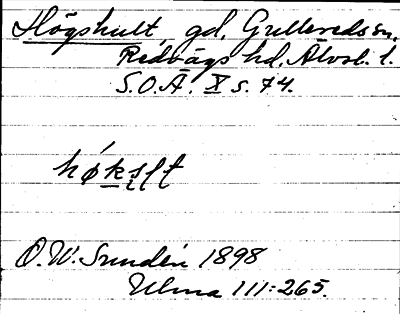 Högshult gd. Gullereds sn.
Redvägs hd. Älvsb. l.
S.O.Ä. X s. 74.
O.W. Sundén 1898
Ulma 111:265.